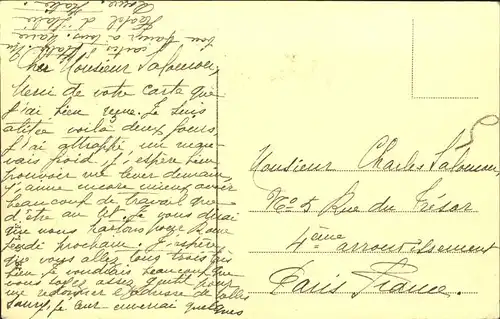 Cher Monsieur Salomon,
Merci de votre carte que
j'ai bien reçue. Je suis
alitée voilà deux jours,
j'ai attrappé un mau-
vais froid, j'espère bien
pouvoir me lever demain,
j'aime encore mieux avoir
beaucoup de travail que
d'être au lit. Je vous dirai
que nous partons pour Rome
jeudi prochain. J'espère
que vous allez tous trois
bien je voudrais beaucoup que
vous soyez assez gentil pour
me redonner l'adresse de
je leur enverrai quelques
cartes d'Italie
bon à tous
Hotel d'Italie
Rome Italie
Monsieur Charles Salomon
No 5 Rue du Trésor
4ème arrondissement
Paris France.